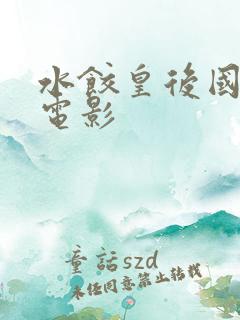 水餃皇後國
電影
童話szd
未經同意禁止轉載